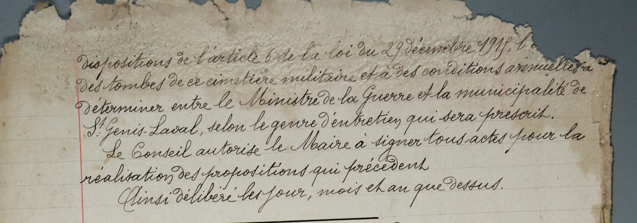 dispositions de l'article 6 de la loi du 29 décembre 1915, l'
des tombes de ce cimetière militaire et à des conditions annuelles à
déterminer entre le Ministre de la Guerre et la municipalité de
St. Genis-Laval, selon le genre d'entretien, qui sera prescrit.
Le Conseil autorise le Maire à signer tous actes pour la
réalisation des propositions qui précèdent
Ainsi délibéré les jour, mois et an que dessus.